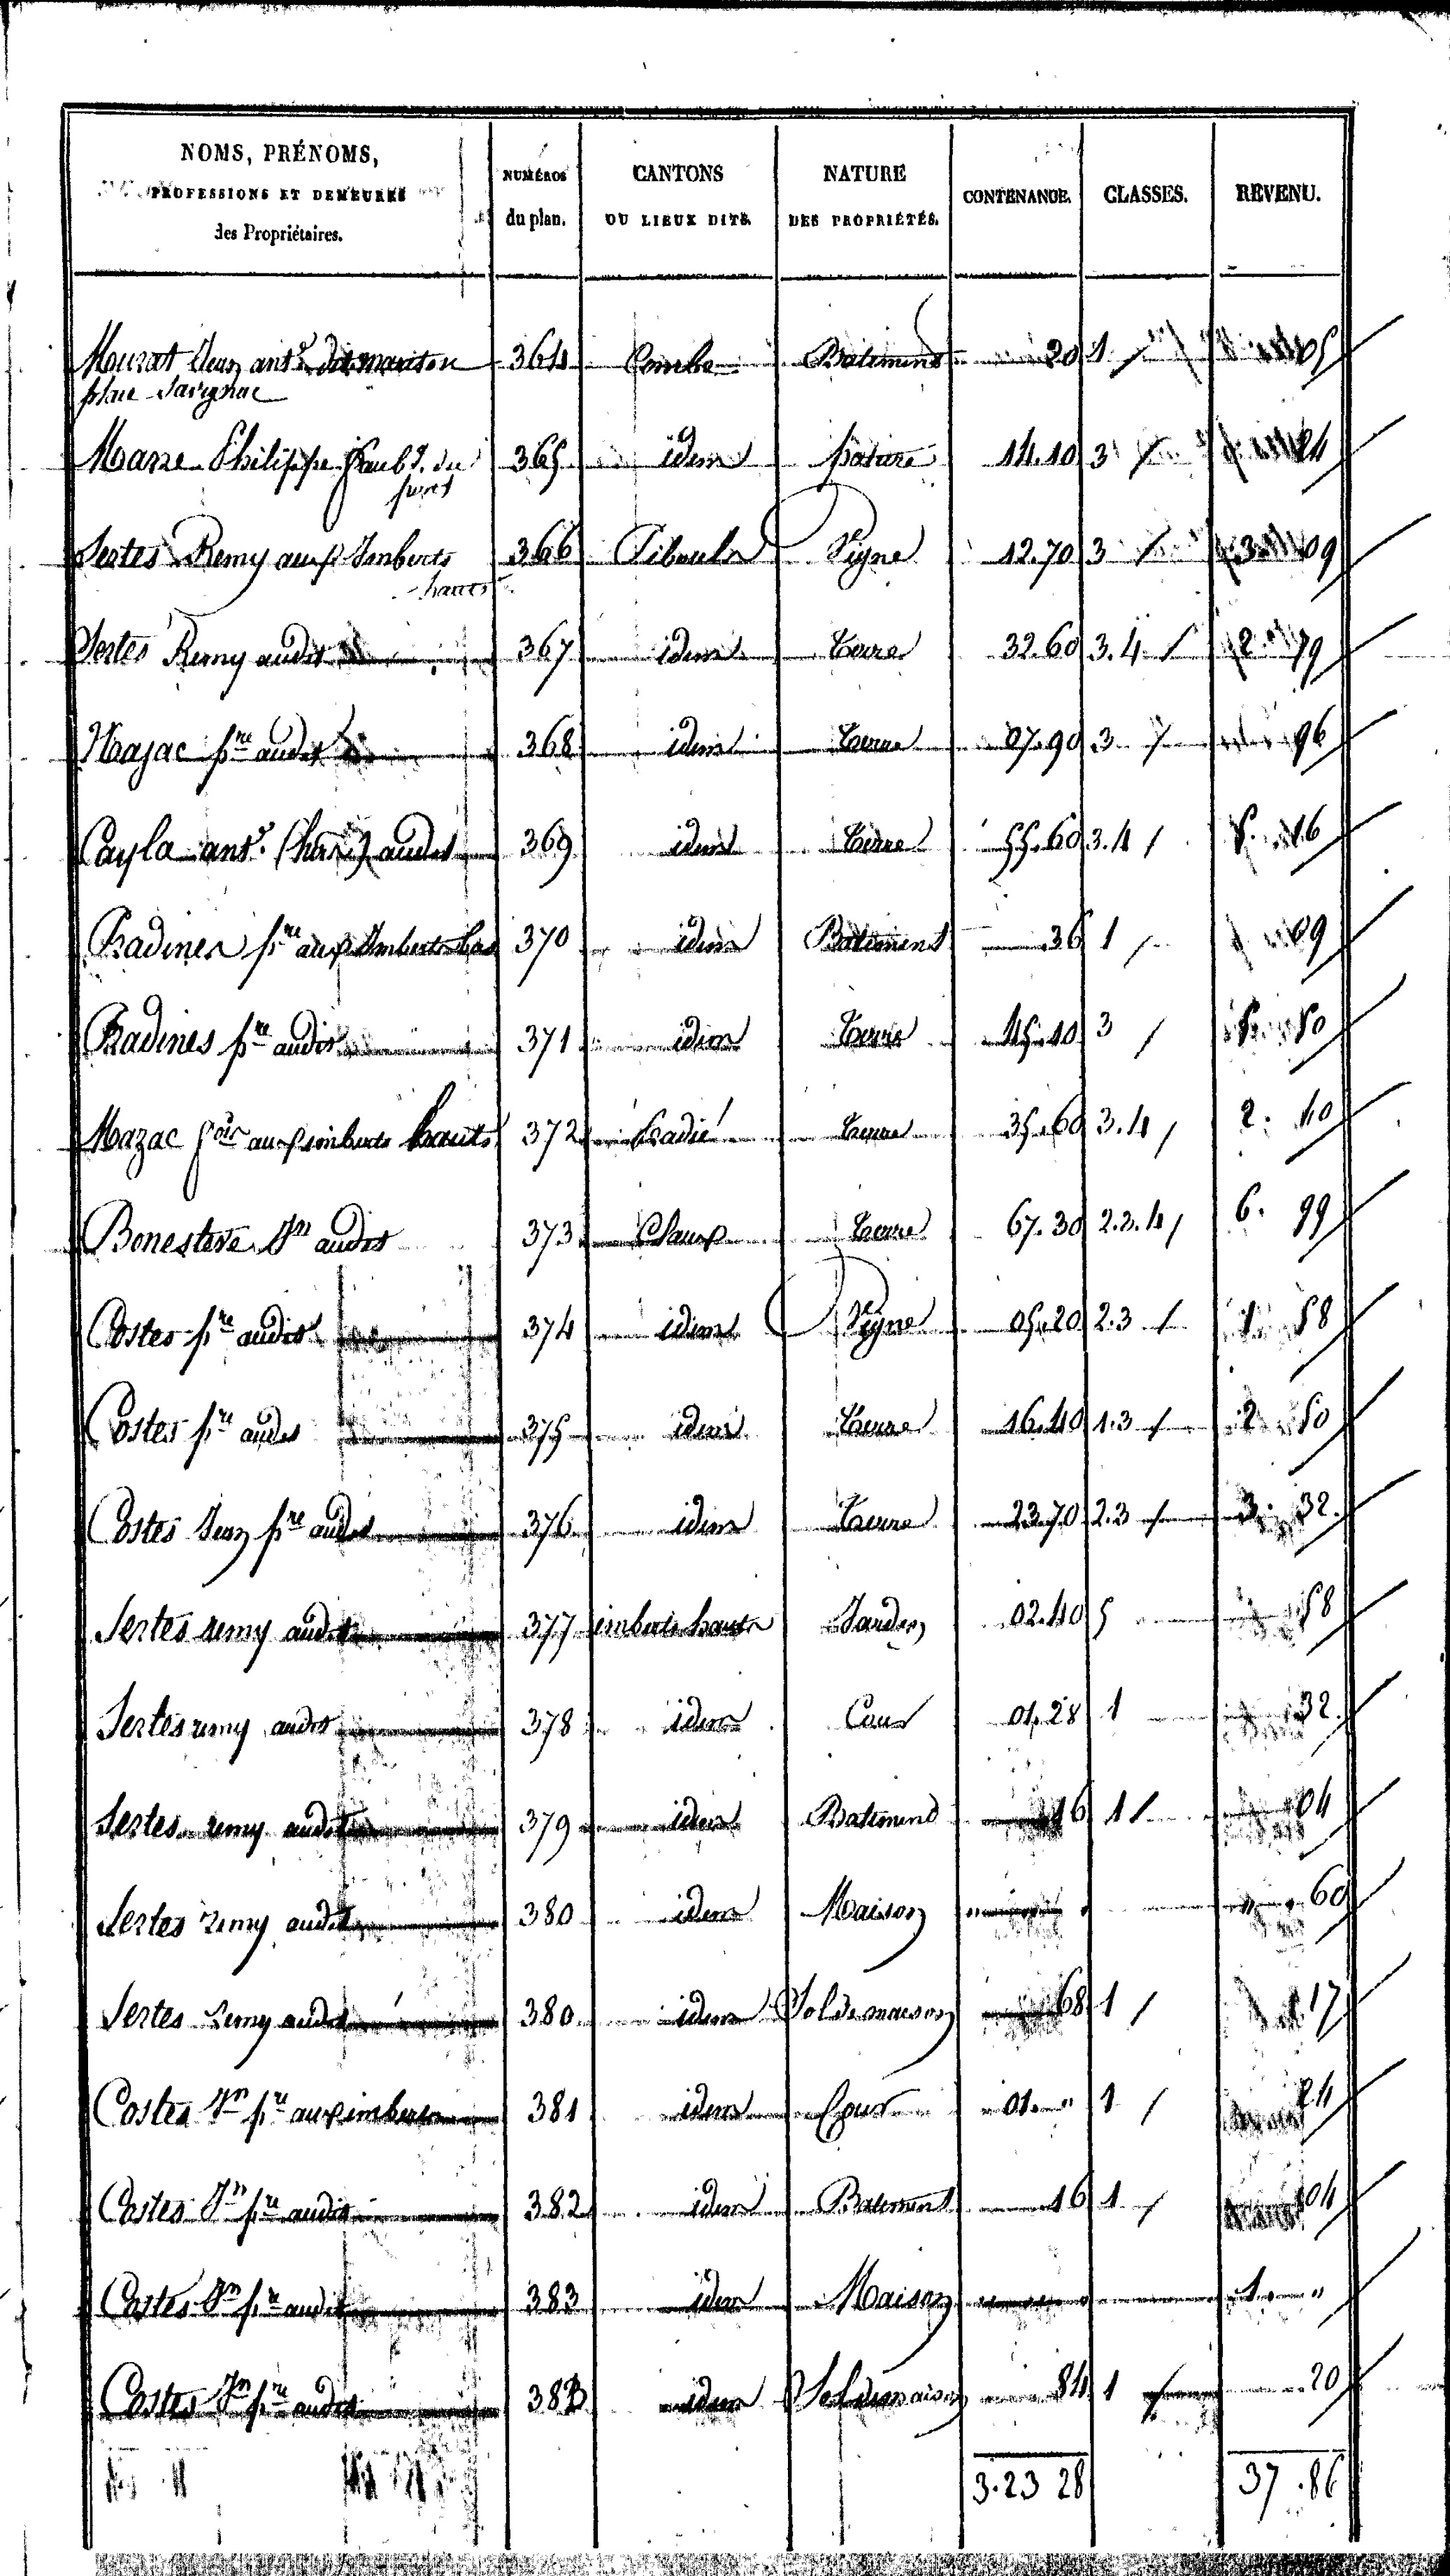 NOMS, PRÉNOMS, PROFESSIONS ET DEMEURES des Propriétaires. NUMÉROS du plan. CANTONS OU LIEUX DITS. NATURE DES PROPRIÉTÉS. CONTENANCE. CLASSES. REVENU.
Mourat Jean ant.e dit 364 Combe Batiment 20 1 05
place Savignac
Marre Philippe faub.g du 365 idem pature 14.10 3
pont
Sertes Remy aux Imberts 366 Vigne 12.70 3 3 09
hauts
Sertes Remy audit 367 idem terre 32.60 3.4 2 79
pre audit 368 idem terre 07.90 3 96
Cayla ant.e audit 369 idem terre 55.60 3.4 16
Radines pre aux Imberts bas 370 idem Batiment 36 1 09
Radines pre audit 371 idem terre 3 50
Mazac aux imberts hauts 372 terre 35.60 3.4 2. 40
Jn audit 373 Claux terre 67.30 2.3.4 6. 99
Costes pre audit 374 idem Vigne 05.20 2.3 1 58
Costes pre audit 375 idem terre 16.40 1.3 2 50
Costes Jean pre audit 376 idem terre 23.70 2.3 3. 32.
Sertes remy audit 377 imberts hauts Jardin 02.40 5 58
Sertes remy audit 378 idem Cour 01.28 1 32.
Sertes remy audit 379 idem Batiment 16 1 04
Sertes remy audit 380 idem Maison " 60
Sertes remy audit 380 idem Sol de maison 68 1 17
Costes Jn pre aux imberts 381 idem Cour 01. " 1 24
Costes Jn pre audit 382 idem Batiment 16 1 04
Costes Jn pre audit 383 idem Maison 1. "
Costes Jn pre audit 383 idem Sol de maison 84 1 20
3.23 28 37.86